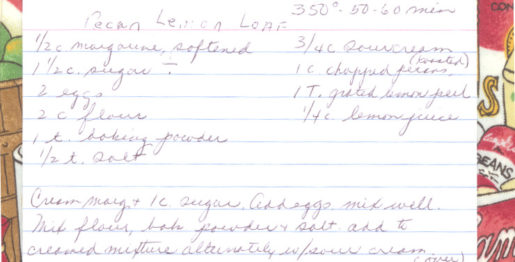 Pecan Lemon Loaf
350° - 50-60 min
1/2 c. margarine, softened
1 1/2 c. sugar ÷
2 eggs
2 c flour
1 t. baking powder
1/2 t. salt
3/4 c sour cream
1 c. chopped pecans (toasted)
1 T. grated lemon peel
1/4 c lemon juice
Cream marg + 1 c. sugar. Add eggs. mix well.
Mix flour, bak powder + salt. add to
creamed mixture alternately w/ sour cream.
(over)
CON
S
BEANS